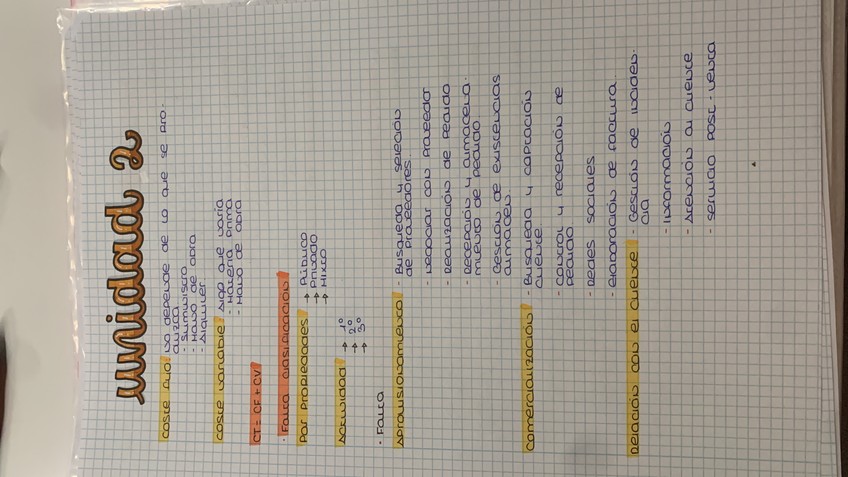 unidad 2
coste fijo: no depende de lo que se pro-
duzca
- Suministro
- Mano de obra
- Alquiler
coste variable: Algo que varia
- Materia prima
- Mano de obra
CT = CF + CV
· Falta clasificación
Por Propiedades
→ Público
→ Privado
→ Mixto
Actividad
→ 1º
→ 2º
→ 3º
· Falta
Aprovisionamiento
- Busqueda y selección
de proveedores.
- Negociar con proveedor
- Realización de pedido
- Recepción y almacena-
miento de pedido
- Gestion de existencias
almacen.
Comercialización
- Busqueda y captación
cliente
- Control y recepción de
pedido
- Redes sociales
- Elaboración de factura.
Relación con el cliente
- Gestión de inciden-
cia
- Información
- Atención al cliente
- Servicio post-venta